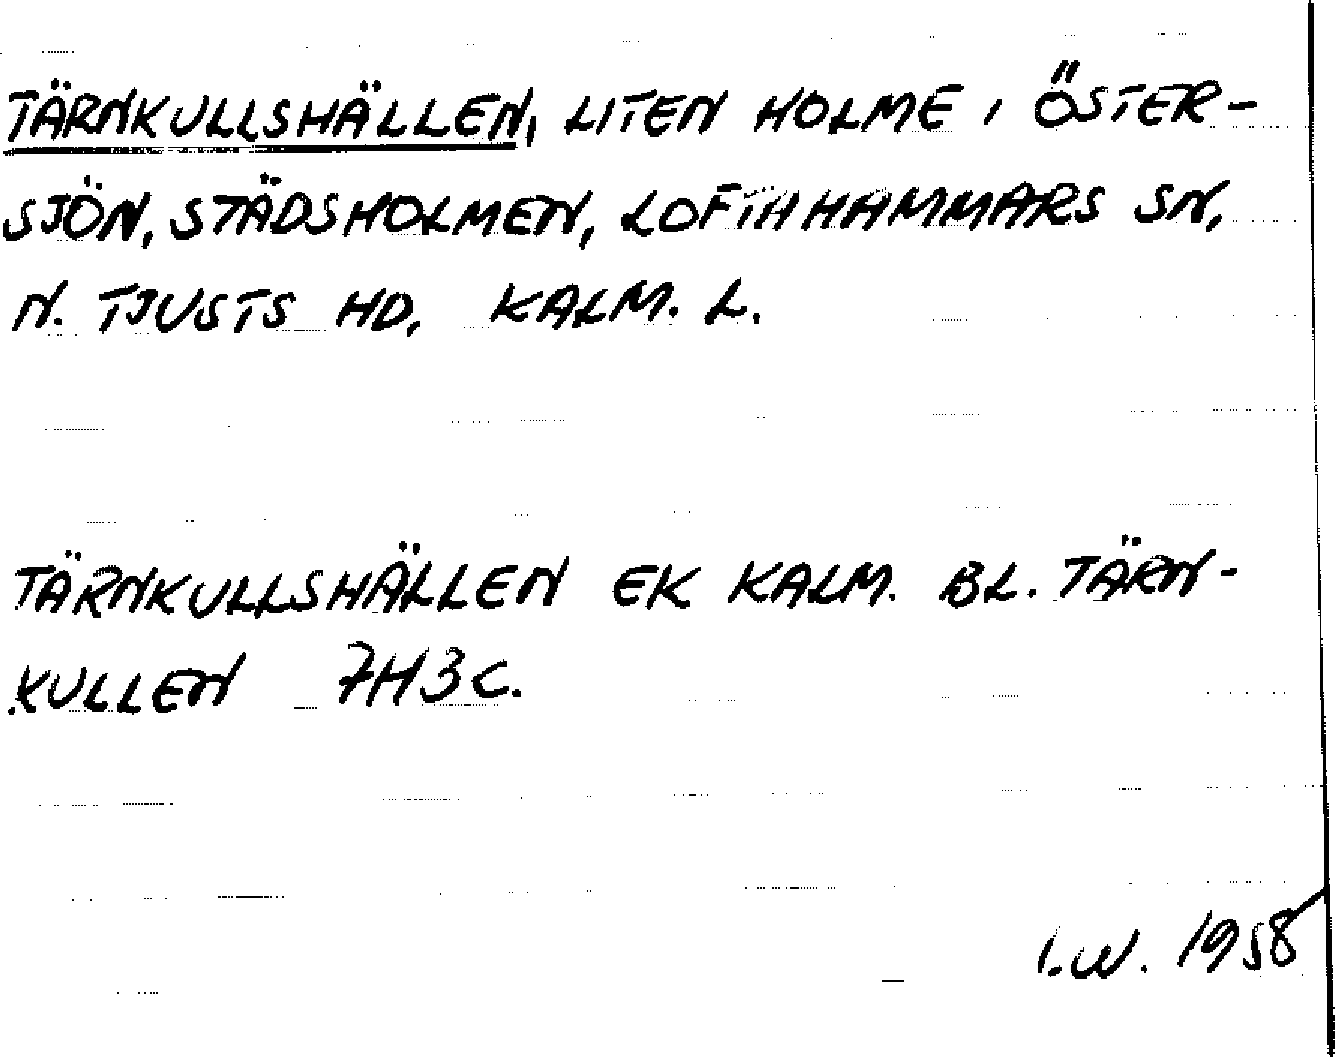 TÄRNKULLSHÄLLEN, LITEN HOLME I ÖSTER-
SJÖN, STÄDSHOLMEN, LOFTAHAMMARS SN,
N. TJUSTS HD, KALM. L.
TÄRNKULLSHÄLLEN EK KALM. BL. TÄRN-
KULLEN 7H3C.
I.W. 1958